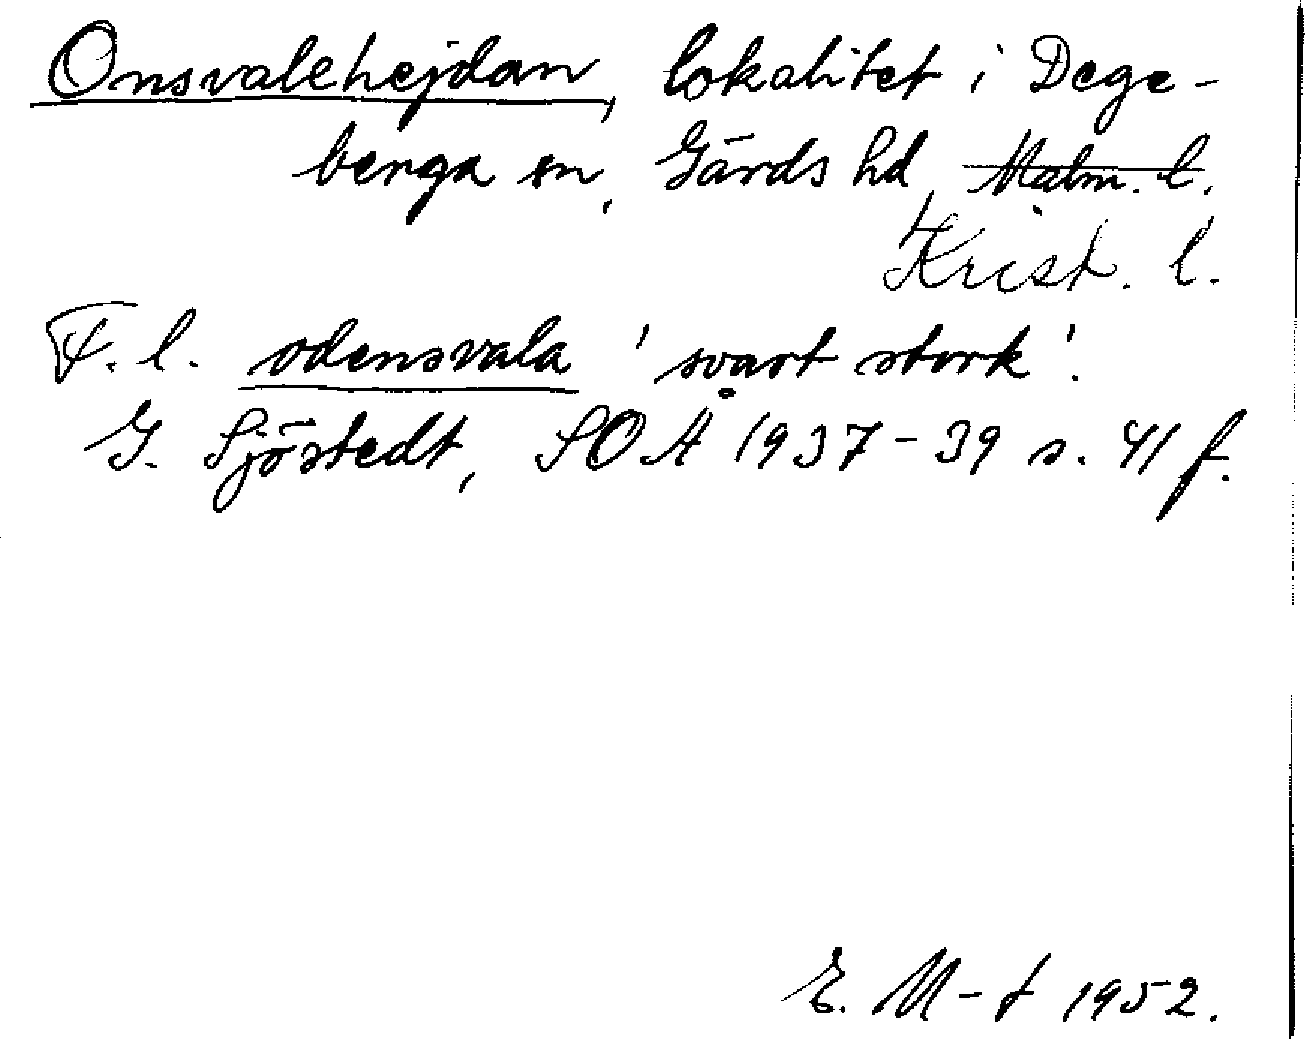 Onsvalehejdan, lokalitet i Dege-
berga sn, Gärds hd, Malm. l.
Krist. l.
F. l. odensvala 'svart stork'.
G. Sjöstedt, SOÅ 1937-39 s. 41 f.
E. M-t 1952.